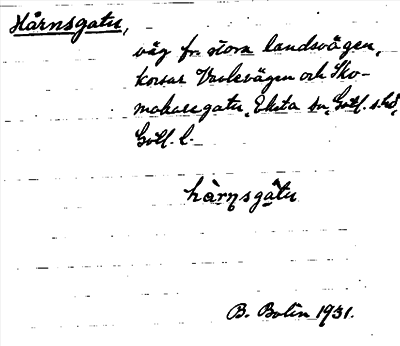 Hårnsgatu,
väg fr. stora landsvägen,
korsar Varlevägen och Sko-
makaregatu, Eksta sn, Gotl. s. hd,
Gotl. l.
hàrnsgàtu
B. Bolin 1931.